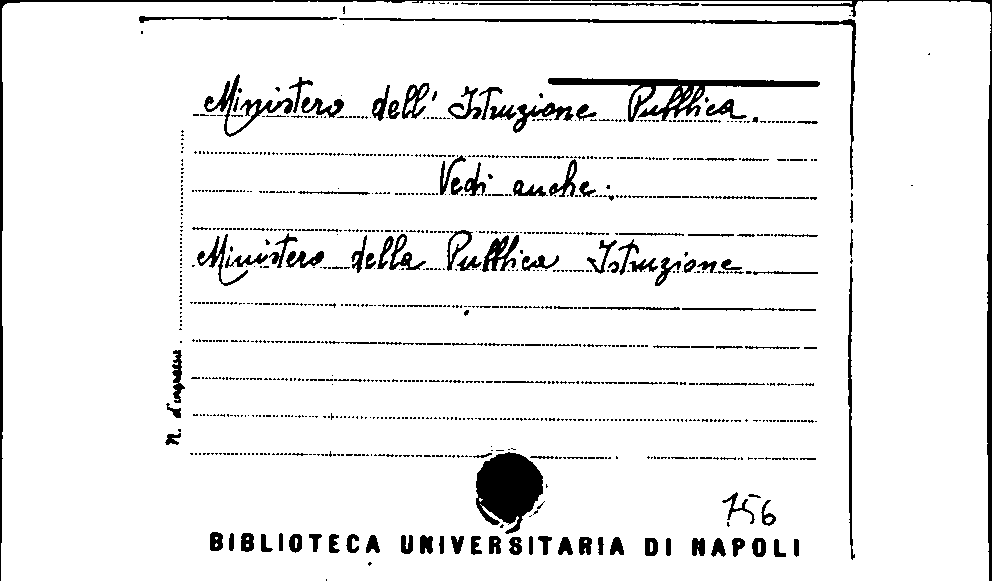 Ministero dell' Istruzione Pubblica.
Vedi anche:
Ministero della Pubblica Istruzione.
N. d'ingresso
756
BIBLIOTECA UNIVERSITARIA DI NAPOLI